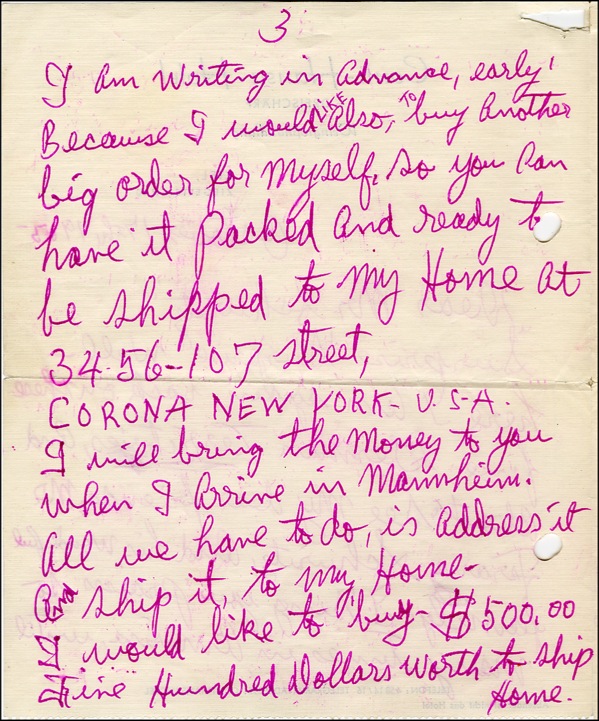 3
I Am Writing in Advance, early!
Because I would LIKE Also, TO buy Another
big order for Myself, So you Can
have it packed And ready to
be shipped to My Home At
34-56-107 street,
CORONA NEW YORK- U.S.A.
I will bring the Money to you
when I Arrive in Mannheim.
All we have to do, is Address it
And ship it to my Home-
I would like to buy- $500.00
Five Hundred Dollars Worth to ship
Home.